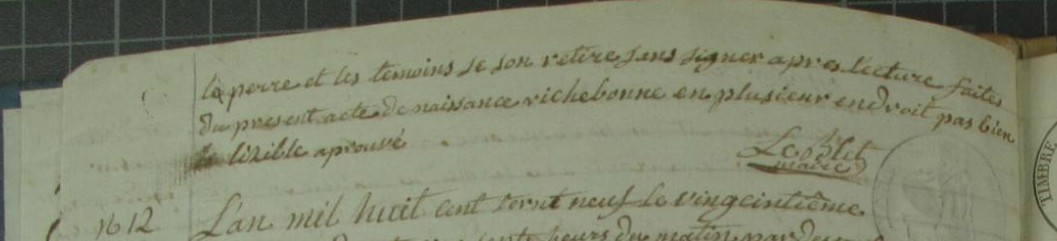 le perre et les temoins se son retire sans signer apres lecture faites
du present acte de naissance richebonne en plusieur endroit pas bien
lizible aprouvé
Le Blet
maire
TIMBRE
N 12 L'an mil huit cent trent neuf le vingeintième
heurs du matin par de